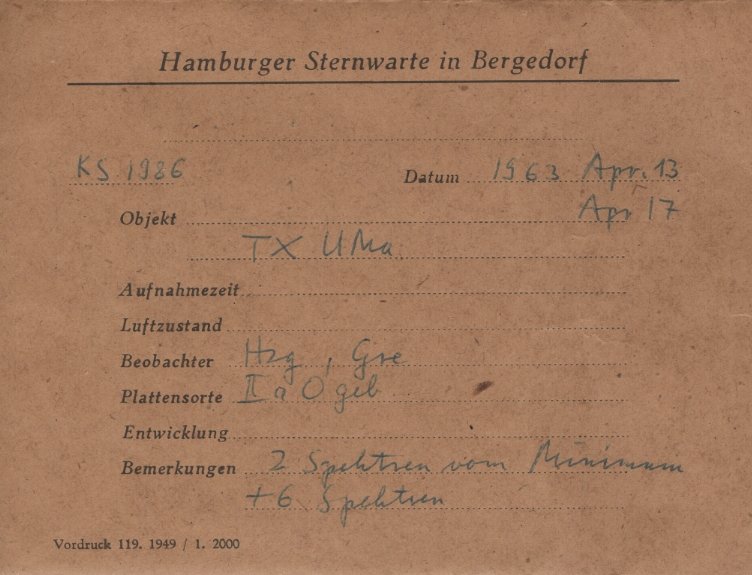 Hamburger Sternwarte in Bergedorf
KS 1986 Datum 1963 Apr. 13
Apr 17
Objekt
TX UMa
Aufnahmezeit
Luftzustand
Beobachter Hzg, Gre
Plattensorte II a O geb
Entwicklung
Bemerkungen 2 Spektren vom Minimum
+6 Spektren
Vordruck 119. 1949 / 1. 2000